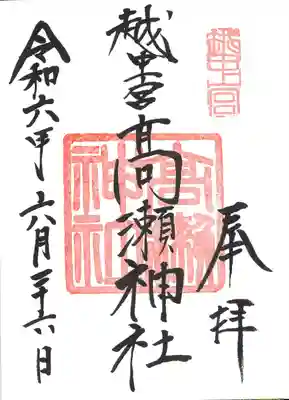 越中一宮
奉拝
越中一宮髙瀬神社
高瀬神社
令和六年六月二十六日